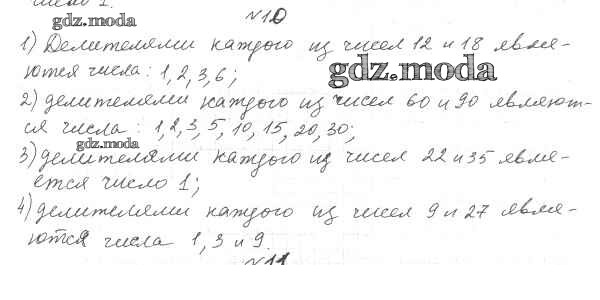 gdz.moda
№10
1) Делителями каждого из чисел 12 и 18 явля-
ются числа: 1, 2, 3, 6;
gdz.moda
2) делителями каждого из чисел 60 и 90 являют-
ся числа: 1, 2, 3, 5, 10, 15, 20, 30;
gdz.moda
3) делителями каждого из чисел 22 и 35 явля-
ется число 1;
4) делителями каждого из чисел 9 и 27 явля-
ются числа 1, 3 и 9.
№11